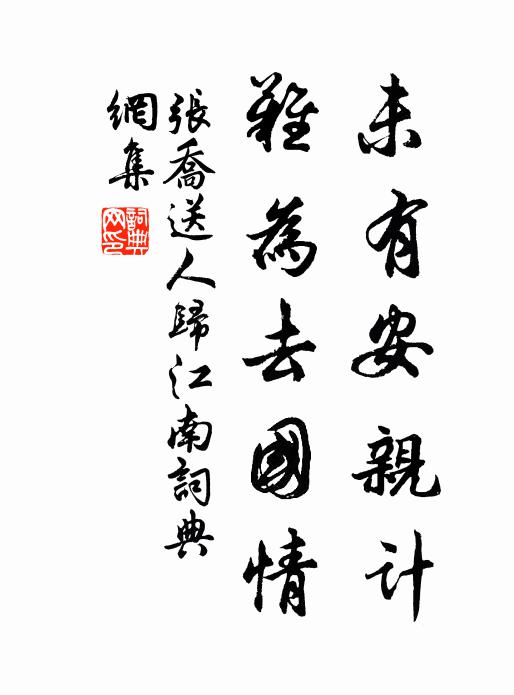 未有安親計
難為去國情
張喬送人歸江南詞典
網集
詞典網印